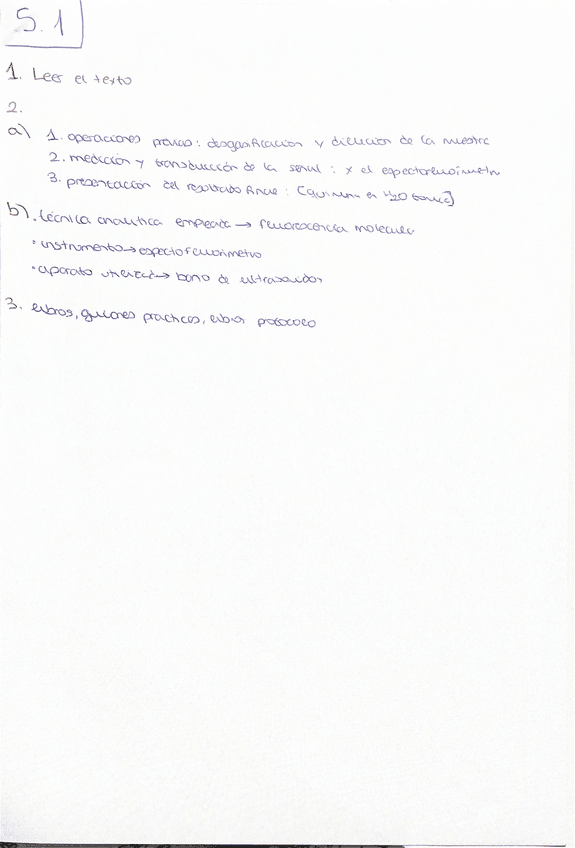 S.1
1. Leer el texto
2.
a) 1. operaciones previas: desgasificacion y dilucion de la muestra
2. medición y transducción de la señal: x el espectrofluorimetro
3. presentación del resultado final: [quinina en H2O tonica]
b) · técnica analitica empleada → fluorescencia molecular
· instrumento → espectofluorimetro
· aparato utilizado → baño de ultrasonidos
3. libros, guiones practicos, protocolo